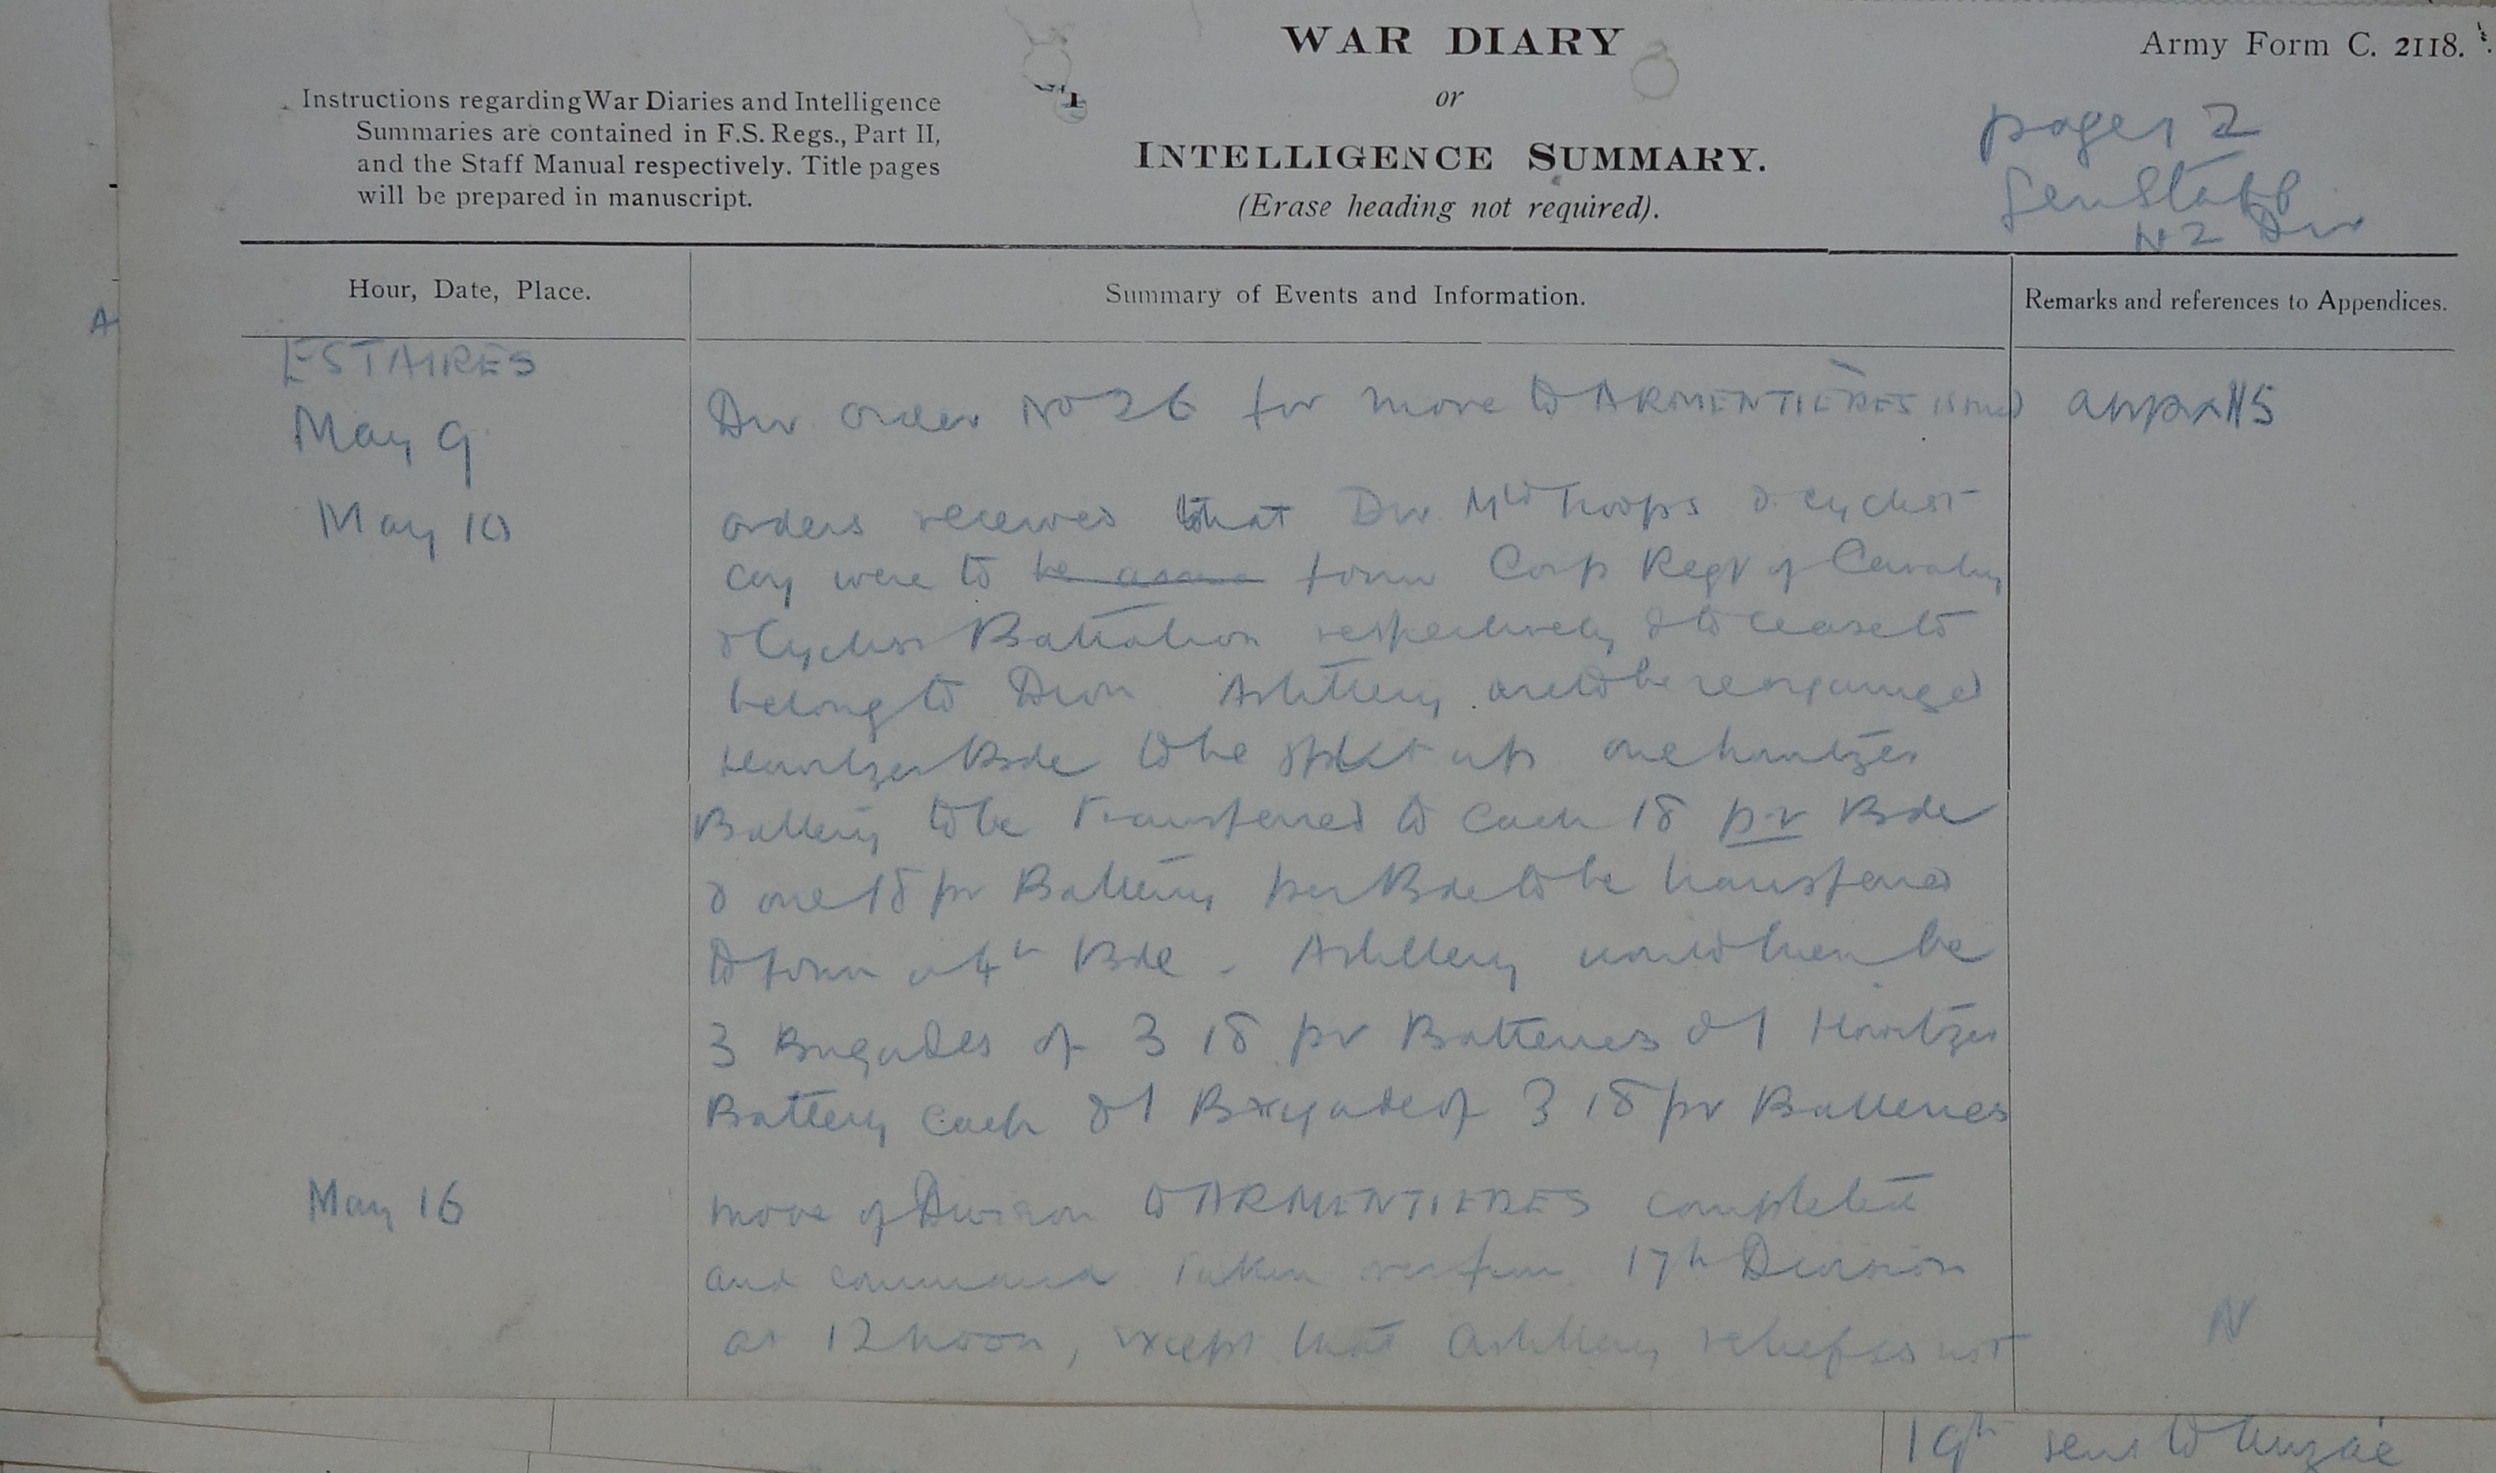 WAR DIARY
or
INTELLIGENCE SUMMARY.
(Erase heading not required).
Army Form C. 2118.
Instructions regarding War Diaries and Intelligence
Summaries are contained in F.S. Regs., Part II,
and the Staff Manual respectively. Title pages
will be prepared in manuscript.
page 2
Gen Staff
NZ Div
Hour, Date, Place.
Summary of Events and Information.
Remarks and references to Appendices.
A
ESTAIRES
May 9
Div. order No 26 for move to ARMENTIÈRES issued
May 10
orders received that Div. Mtd Troops & cyclist
coy were to be form Corps Regt of Cavalry
& Cyclist Battalion respectively & to cease to
belong to Divn Artillery are to be reorganized
Howitzer Bde to be split up one howitzer
Battery to be transferred to each 18 pr Bde
& one 18 pr Battery per Bde to be transferred
to form a 4th Bde. Artillery would then be
3 Brigades of 3 18 pr Batteries & 1 Howitzer
Battery each & 1 Brigade of 3 18 pr Batteries
May 16
move of Division to ARMENTIERES completed
and command taken over from 17th Division
at 12 noon, except that Artillery reliefs not
N
19th sent to Anzac